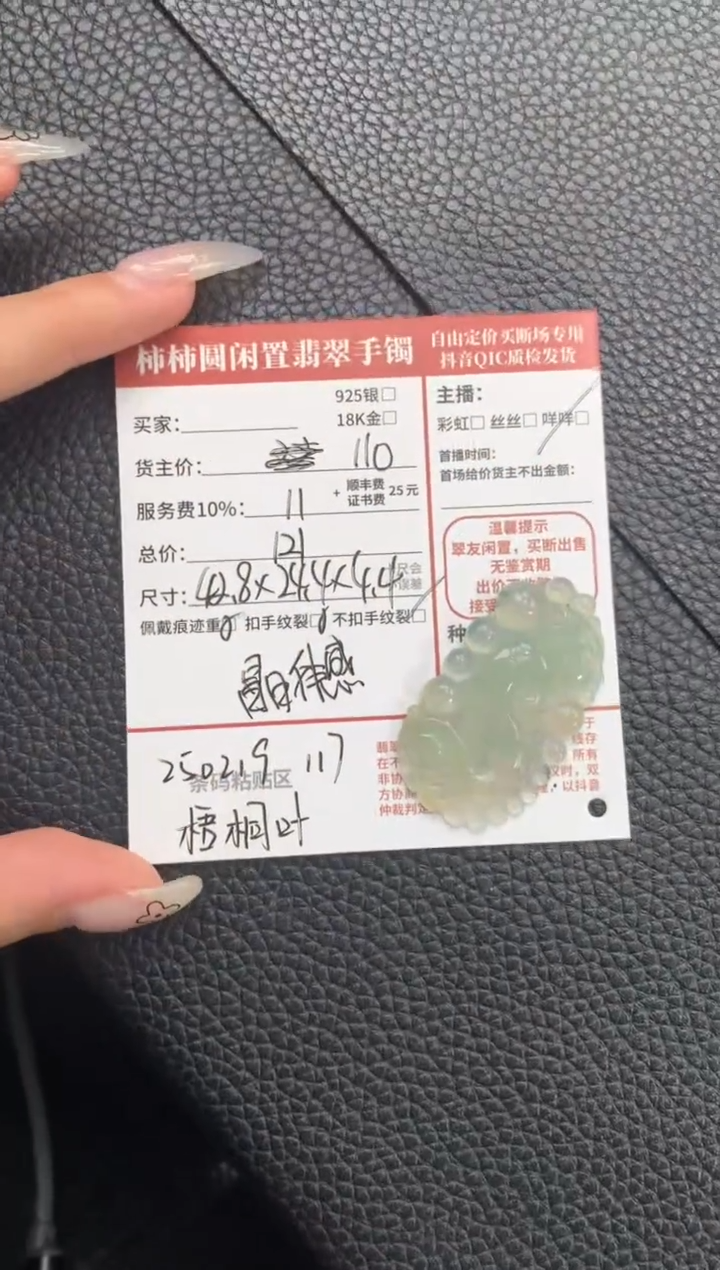 柿柿圆闲置翡翠手镯
自由定价买断场专用
抖音QIC质检发货
925银□
18K金□
买家:
货主价: 110
服务费10%: 11 + 顺丰费 证书费 25元
总价: 121
尺寸: 42.8×24.4×4.4
佩戴痕迹重□ 扣手纹裂□ 不扣手纹裂□
晶体感
250219 117
条码粘贴区
梧桐叶
主播:
彩虹□ 丝丝□ 咩咩□
首播时间:
首场给价货主不出金额:
温馨提示
翠友闲置，买断出售
无鉴赏期
出价
接受
种
翡翠
在不
非协
方协
仲裁判定
于
线存
所有
议时，双
，以抖音